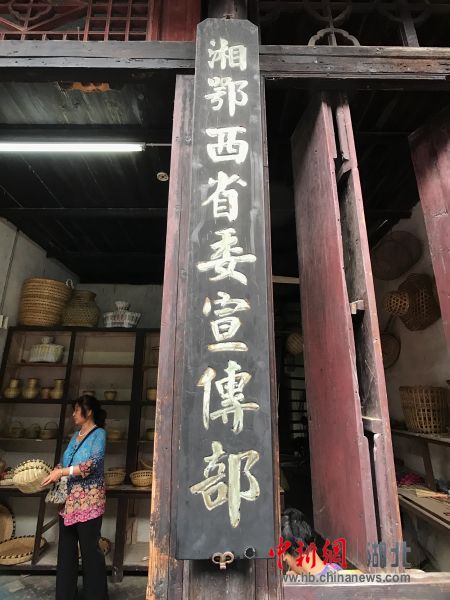 湘鄂西省委宣傳部
中新網 湖北
www.hb.chinanews.com